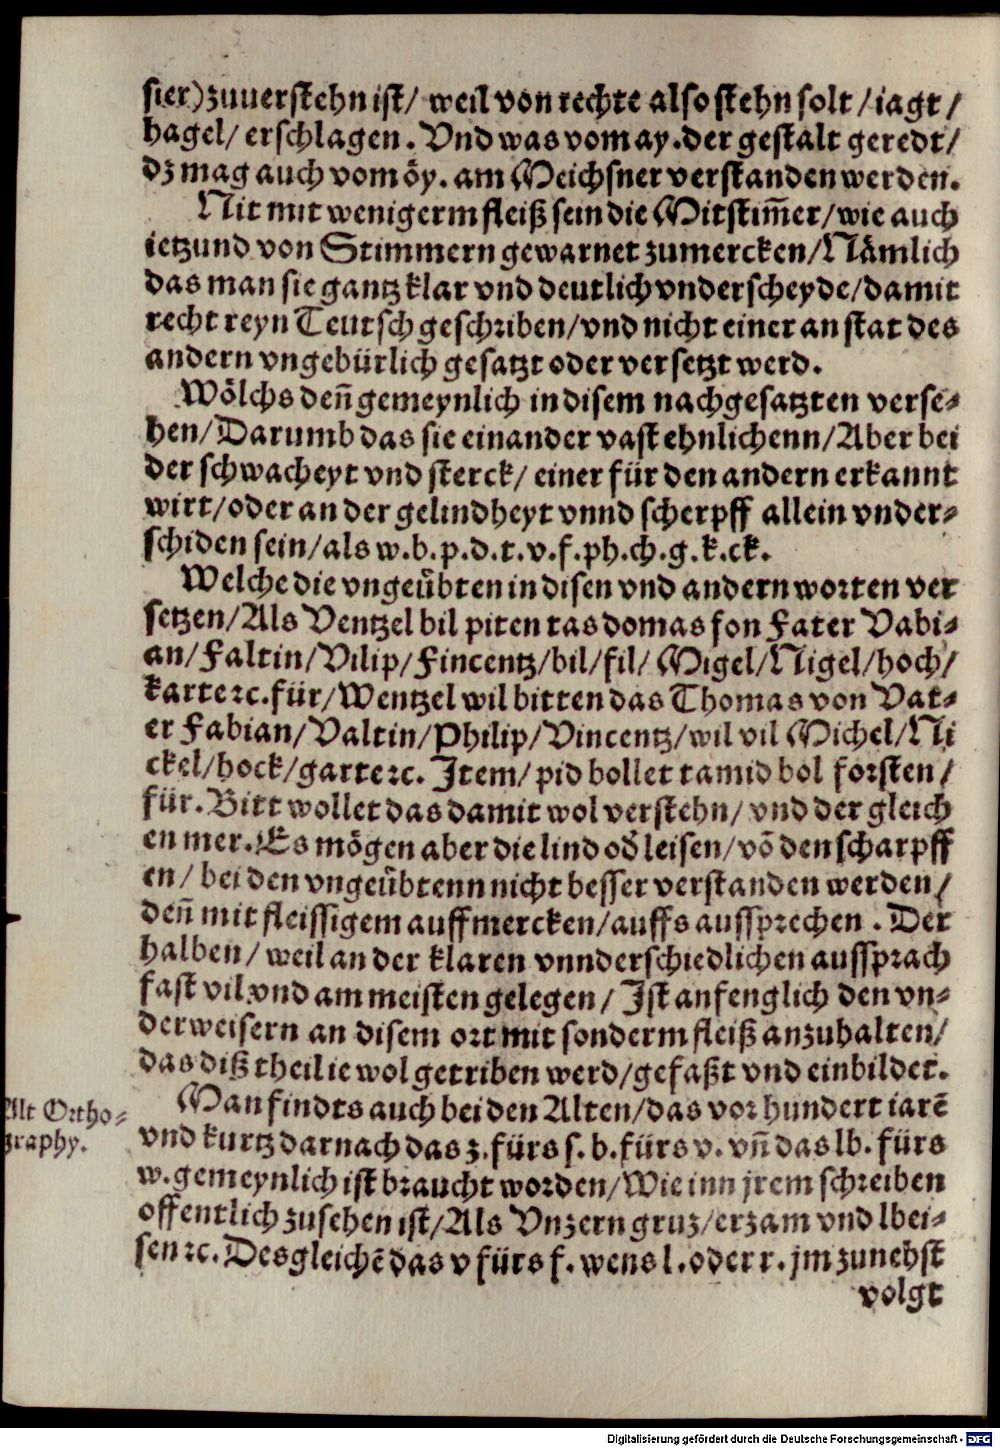 sier) zuuerstehn ist/ weil von rechte also stehn solt/ iagt/
hagel/ erschlagen. Vnd was vom ay. der gestalt geredt/
dz mag auch vom öy. am Meichsner verstanden werden.
Nit mit wenigerm fleiß sein die Mitstim̃er/ wie auch
ietzund von Stimmern gewarnet zumercken/ Nämlich
das man sie gantz klar vnd deutlich vnderscheyde/ damit
recht reyn Teutsch geschriben/ vnd nicht einer an stat des
andern vngebürlich gesatzt oder versetzt werd.
Wölchs deñ gemeynlich in disem nachgesatzten verse⸗
hen/ Darumb das sie einander vast ehnlichenn/ Aber bei
der schwacheyt vnd sterck/ einer für den andern erkannt
wirt/ oder an der gelindheyt vnnd scherpff allein vnder⸗
schiden sein/ als w. b. p. d. t. v. f. ph. ch. g. k. ck.
Welche die vngeübten in disen vnd andern worten ver
setzen/ Als Ventzel bil piten tas domas fon Fater Vabi⸗
an/ Faltin/ Vilip/ Fincentz/ bil/ fil/ Migel/ Nigel/ hoch/
karte ꝛc. für/ Wentzel wil bitten das Thomas von Vat⸗
er Fabian/ Valtin/ Philip/ Vincentz/ wil vil Michel/ Ni
ckel/ hock/ garte ꝛc. Item/ pid bollet tamid bol forsten/
für. Bitt wollet das damit wol verstehn/ vnd der gleich
en mer. Es mögen aber die lind od̕ leisen/ võ den scharpff
en/ bei den vngeübtenn nicht besser verstanden werden/
deñ mit fleissigem auffmercken/ auffs aussprechen. Der
halben/ weil an der klaren vnnderschiedlichen aussprach
fast vil vnd am meisten gelegen/ Ist anfenglich den vn⸗
derweisern an disem ort mit sonderm fleiß anzuhalten/
das diß theil ie wol getriben werd/ gefaßt vnd einbildet.
Man findts auch bei den Alten/ das vor hundert iarẽ
Alt Ortho⸗
graphy.
vnd kurtz darnach das z. fürs s. b. fürs v. vñ das lb. fürs
w. gemeynlich ist braucht worden/ Wie inn jrem schreiben
offentlich zusehen ist/ Als Vnzern gruz/ erzam vnd lbei⸗
sen ꝛc. Desgleichẽ das v fürs f. wens l. oder r. jm zunehst
volgt
Digitalisierung gefördert durch die Deutsche Forschungsgemeinschaft - DFG